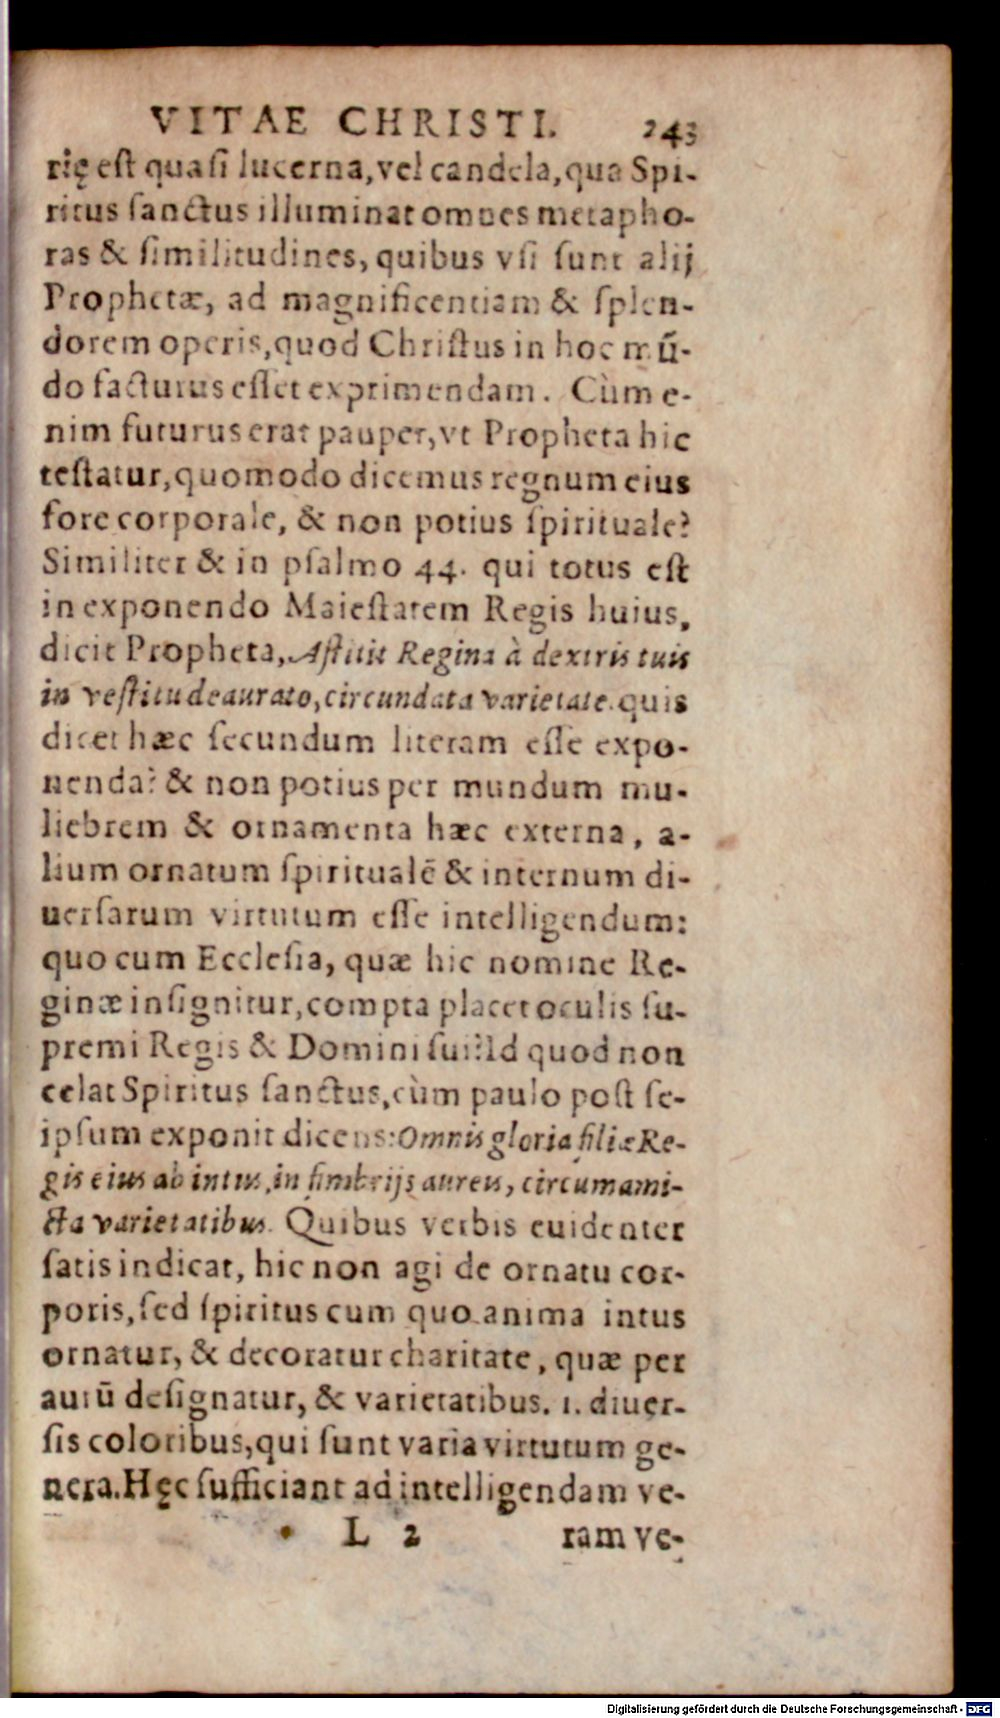 VITAE CHRISTI. 243
rię est quasi lucerna, vel candela, qua Spi-
ritus sanctus illuminat omnes metapho-
ras & similitudines, quibus vsi sunt alij
Prophetæ, ad magnificentiam & splen-
dorem operis, quod Christus in hoc mū-
do facturus esset exprimendam. Cùm e-
nim futurus erat pauper, vt Propheta hic
testatur, quomodo dicemus regnum eius
fore corporale, & non potius spirituale?
Similiter & in psalmo 44. qui totus est
in exponendo Maiestatem Regis huius,
dicit Propheta, Astitit Regina à dextris tuis
in vestitu deaurato, circundata varietate. quis
dicet hæc secundum literam esse expo-
nenda? & non potius per mundum mu-
liebrem & ornamenta hæc externa, a-
lium ornatum spiritualē & internum di-
uersarum virtutum esse intelligendum:
quo cum Ecclesia, quæ hic nomine Re-
ginæ insignitur, compta placet oculis su-
premi Regis & Domini sui? Id quod non
celat Spiritus sanctus, cùm paulo post se-
ipsum exponit dicens: Omnis gloria filiæ Re-
gis eius ab intus, in fimbrijs aureis, circumami-
cta varietatibus. Quibus verbis euidenter
satis indicat, hic non agi de ornatu cor-
poris, sed spiritus cum quo anima intus
ornatur, & decoratur charitate, quæ per
aurū designatur, & varietatibus. i. diuer-
sis coloribus, qui sunt varia virtutum ge-
nera. Hęc sufficiant ad intelligendam ve-
L 2 ram ve-
Digitalisierung gefördert durch die Deutsche Forschungsgemeinschaft - DFG